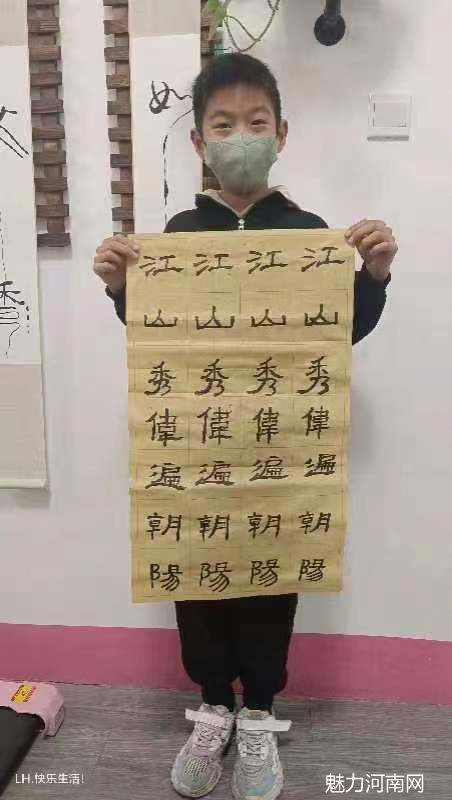 江江江江
山山山山
秀秀秀秀
偉偉偉偉
遍遍遍遍
朝朝朝朝
陽陽陽陽
如
LH.快乐生活!
魅力河南网